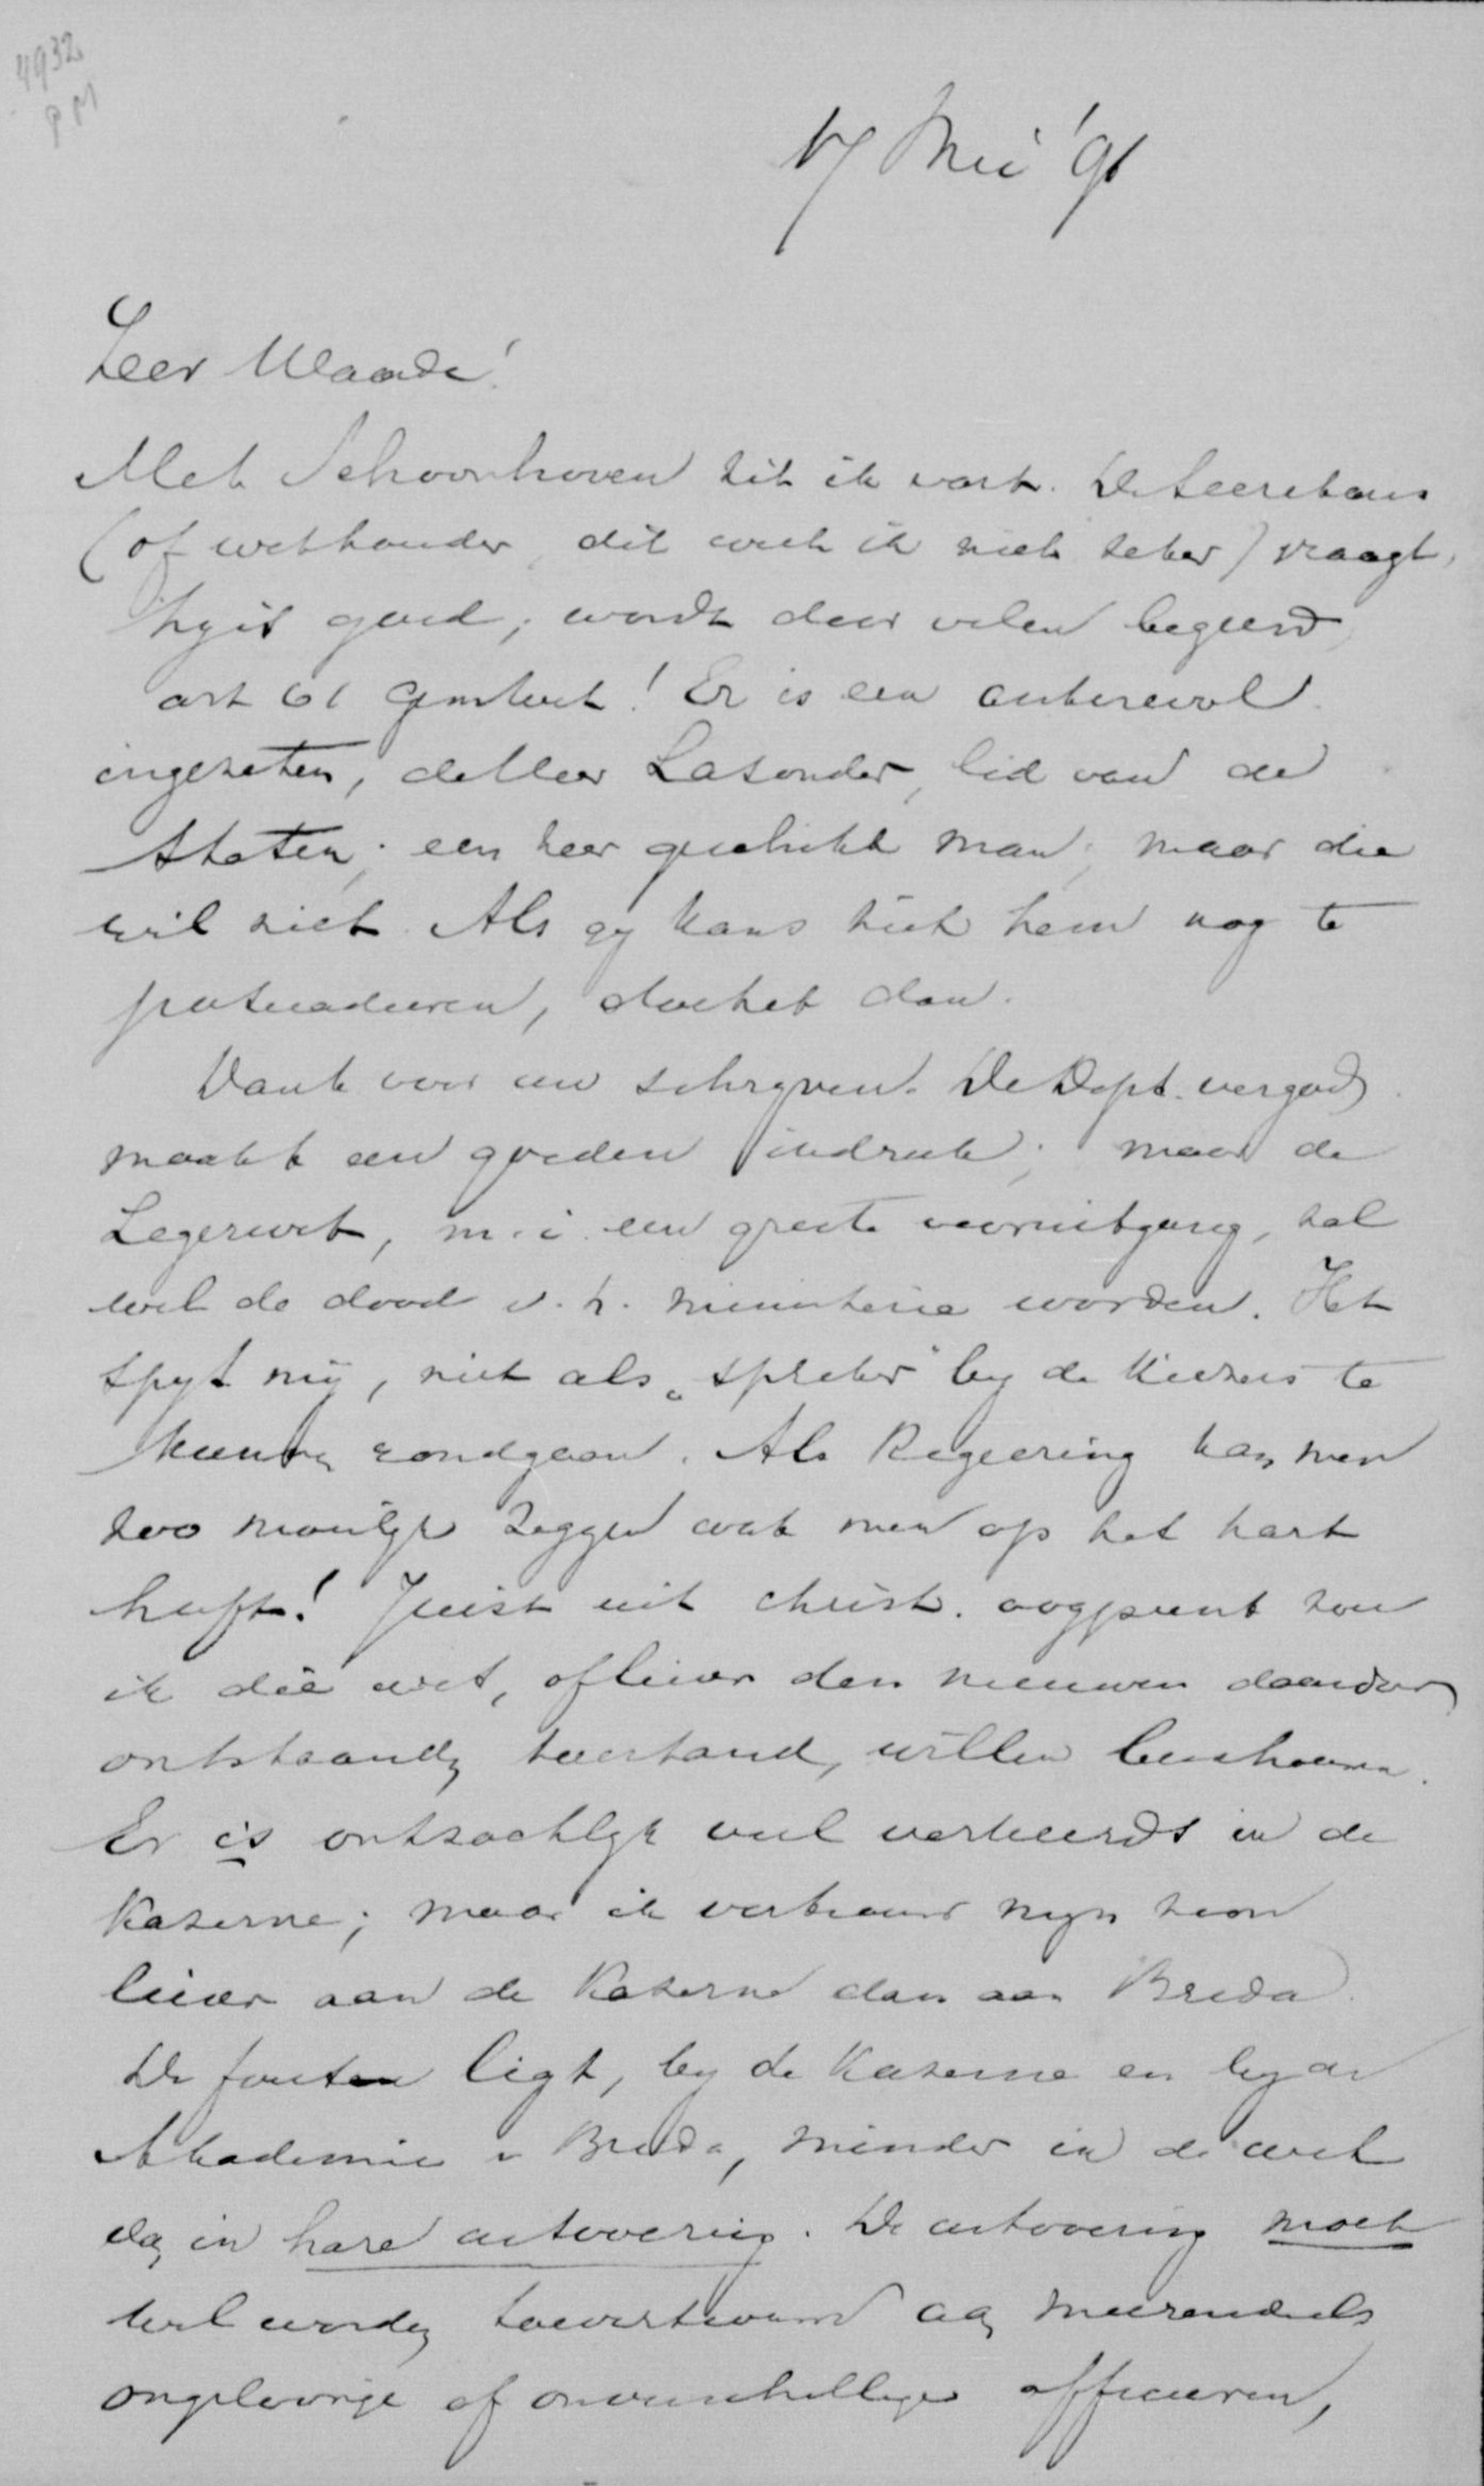 4932
PM
17 Mei '91
Zeer Waarde!
Met Schoonhoven zit ik vast. De Secretaris
(of wethouder, dit weet ik niet zeker) vraagt,
hy is goed; wordt door velen begeerd,
art 61 Gemtewet! Er is een antirevol.
ingezeten, de Heer Lasonder, lid van de
Staten; een zeer geschikt man; maar die
wil niet. Als gy kans ziet hem nog te
persuadeeren, doe het dan.
Dank voor uw schryven. De Dept. vergad
maakt een goeden indruk; maar de
Legerwet, m.i. een groote vooruitgang, zal
wel de dood v. h. ministerie worden. Het
spyt my, niet als "spreker" by de kiezers te
kunnen rondgaan. Als Regeering kan men
zoo moeilyk zeggen wat men op het hart
heeft! Juist uit christ. oogpunt zou
ik die wet, of liever den nieuwen daardoor
ontstaanden toestand, willen beschouwen.
Er is ontzachlyk veel verkeerds in de
Kazerne; maar ik vertrouw myn zoon
liever aan de Kazerne dan aan Breda.
De fouten ligt, by de Kazerne en by de
Akademie v Breda, minder in de wet
dan in hare uitvoering. De uitvoering moet
wel worden toevertrouwd aan meerendeels
ongeloovige of onverschillige officieren,